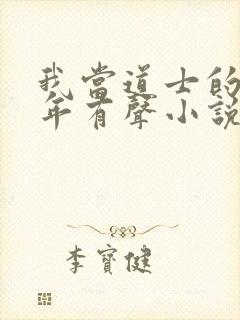 我當道士的
年有聲小說
李寶健